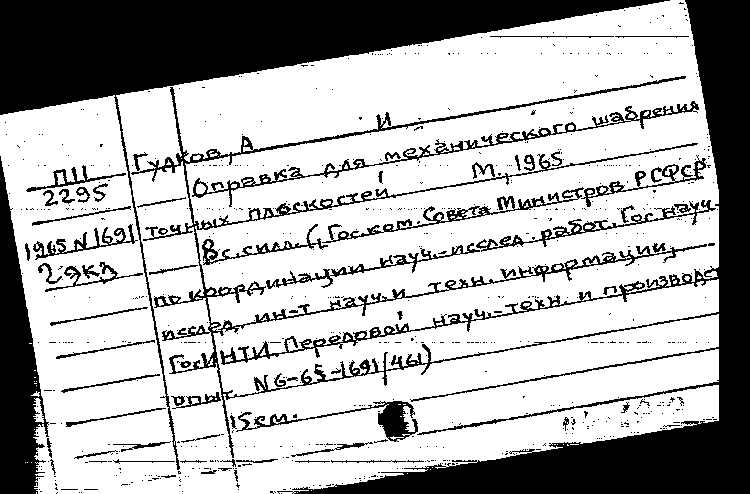 ПЦ
2295
1965 N 1691
2 экз
Гудков, А И
Оправка для механического шабрения
точных плоскостей. М., 1965.
8 с. силл. (Гос. ком. Совета Министров РСФСР
по координации науч.-исслед. работ. Гос науч.-
исслед. ин-т науч. и техн. информации,
ГосИНТИ. Передовой науч.-техн. и производст
опыт. N 6-65-1691/461)
15 см.